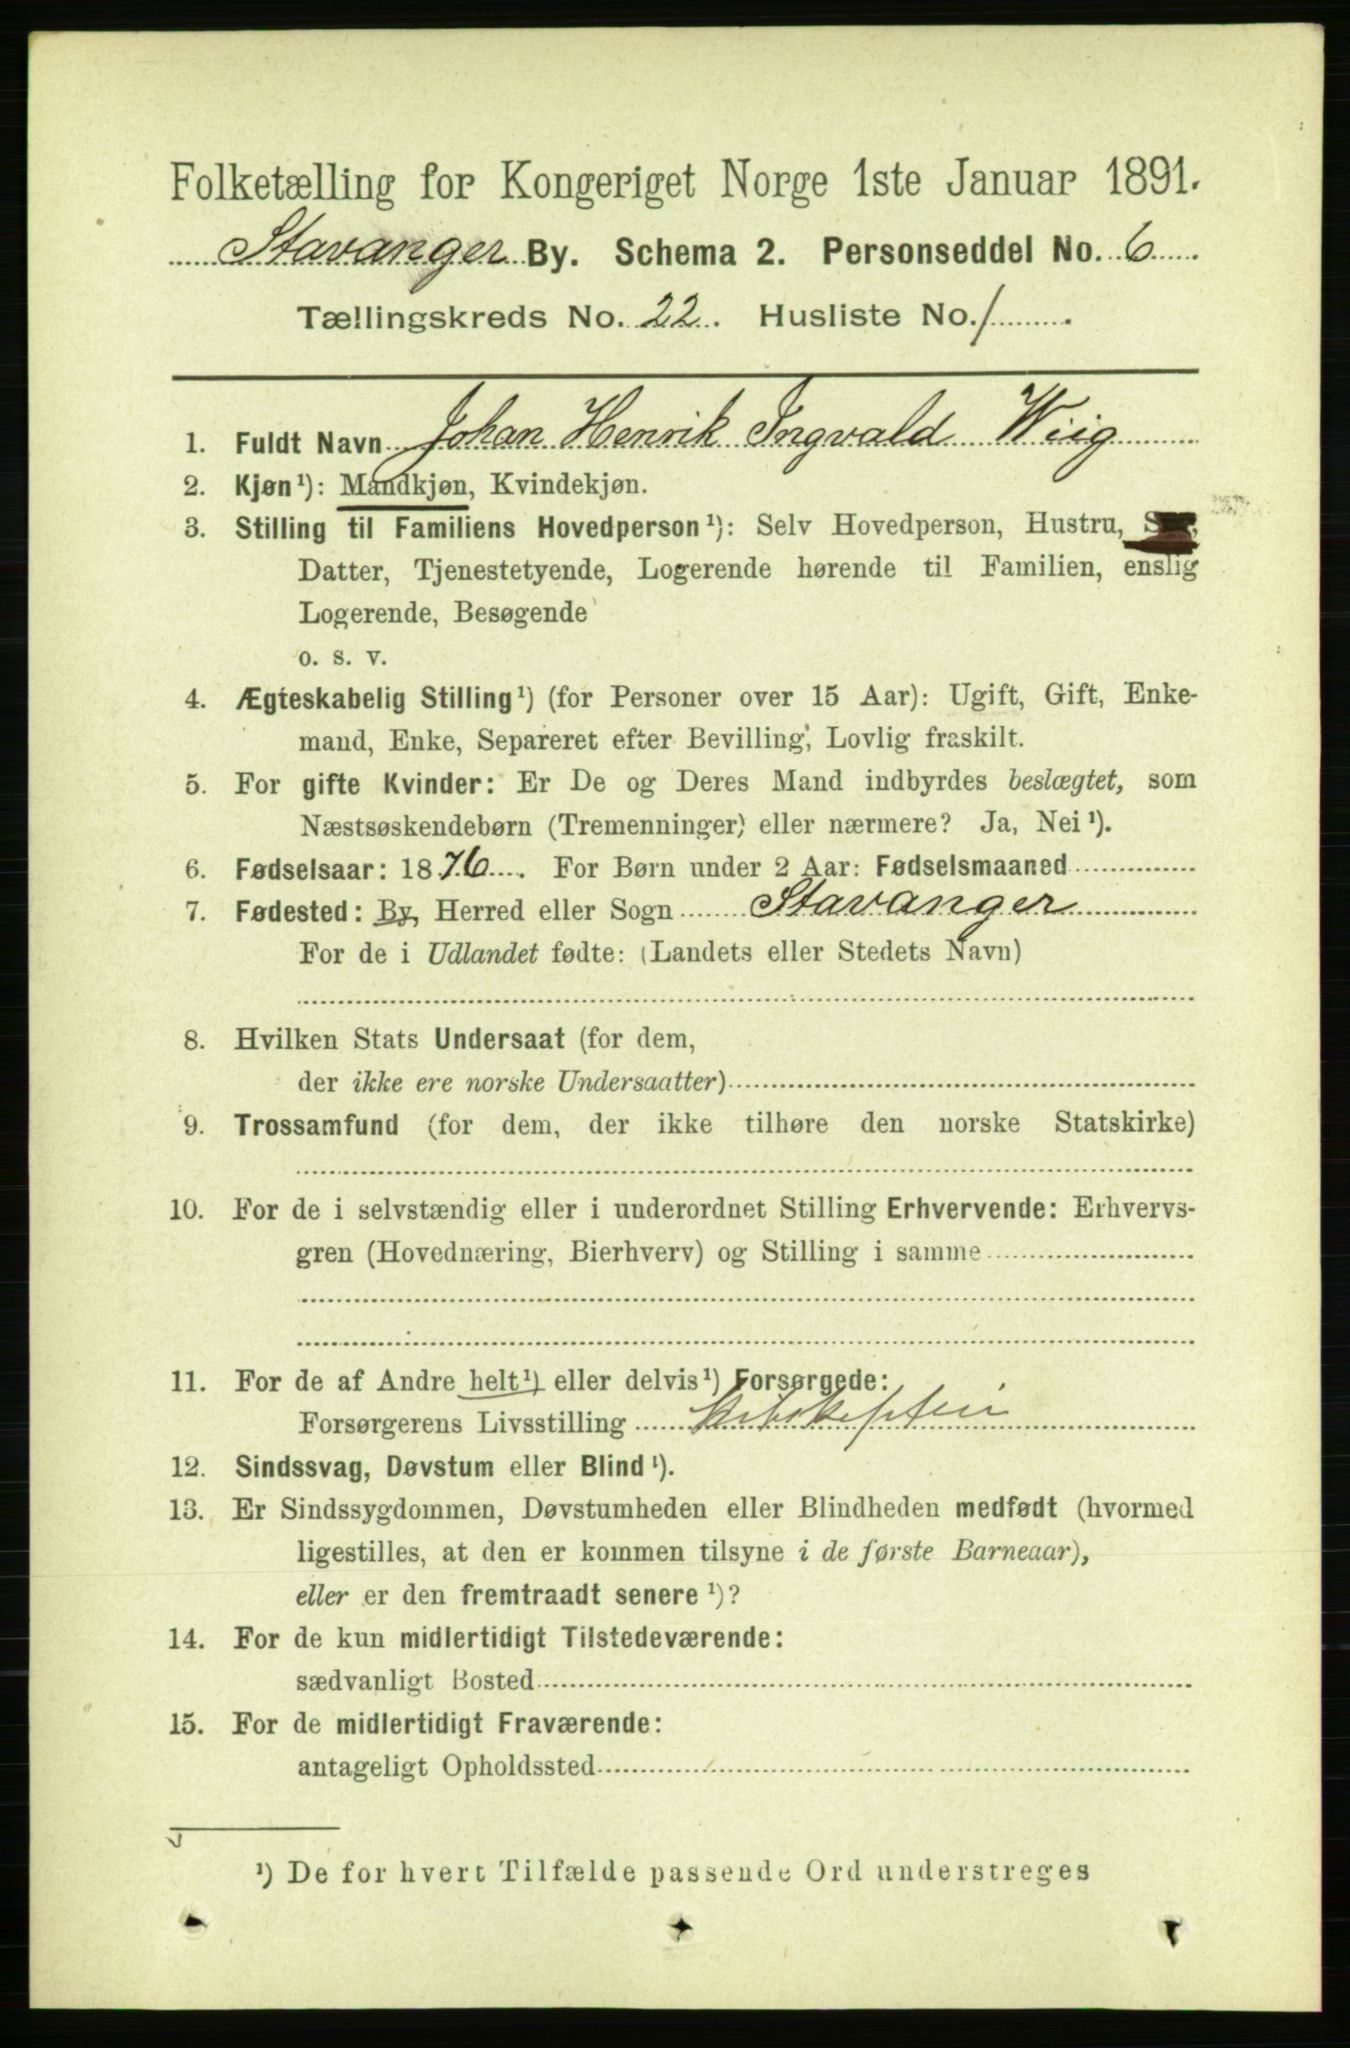 Folketælling for Kongeriget Norge 1ste Januar 1891.
Stavanger By. Schema 2. Personseddel No. 6
Tællingskreds No. 22. Husliste No. 1
1. Fuldt Navn Johan Henrik Ingvald Wiig
2. Kjøn¹): Mandkjøn, Kvindekjøn.
3. Stilling til Familiens Hovedperson¹): Selv Hovedperson, Hustru,
Datter, Tjenestetyende, Logerende hørende til Familien, enslig
Logerende, Besøgende
o. s. v.
4. Ægteskabelig Stilling¹) (for Personer over 15 Aar): Ugift, Gift, Enke-
mand, Enke, Separeret efter Bevilling, Lovlig fraskilt.
5. For gifte Kvinder: Er De og Deres Mand indbyrdes beslægtet, som
Næstsøskendebørn (Tremenninger) eller nærmere? Ja, Nei¹).
6. Fødselsaar: 1876. For Børn under 2 Aar: Fødselsmaaned
7. Fødested: By, Herred eller Sogn Stavanger
For de i Udlandet fødte: (Landets eller Stedets Navn)
8. Hvilken Stats Undersaat (for dem,
der ikke ere norske Undersaatter)
9. Trossamfund (for dem, der ikke tilhøre den norske Statskirke)
10. For de i selvstændig eller i underordnet Stilling Erhvervende: Erhvervs-
gren (Hovednæring, Bierhverv) og Stilling i samme
11. For de af Andre helt¹) eller delvis¹) Forsørgede:
Forsørgerens Livsstilling
12. Sindssvag, Døvstum eller Blind¹).
13. Er Sindssygdommen, Døvstumheden eller Blindheden medfødt (hvormed
ligestilles, at den er kommen tilsyne i de første Barneaar),
eller er den fremtraadt senere¹)?
14. For de kun midlertidigt Tilstedeværende:
sædvanligt Bosted
15. For de midlertidigt Fraværende:
antageligt Opholdssted
¹) De for hvert Tilfælde passende Ord understreges